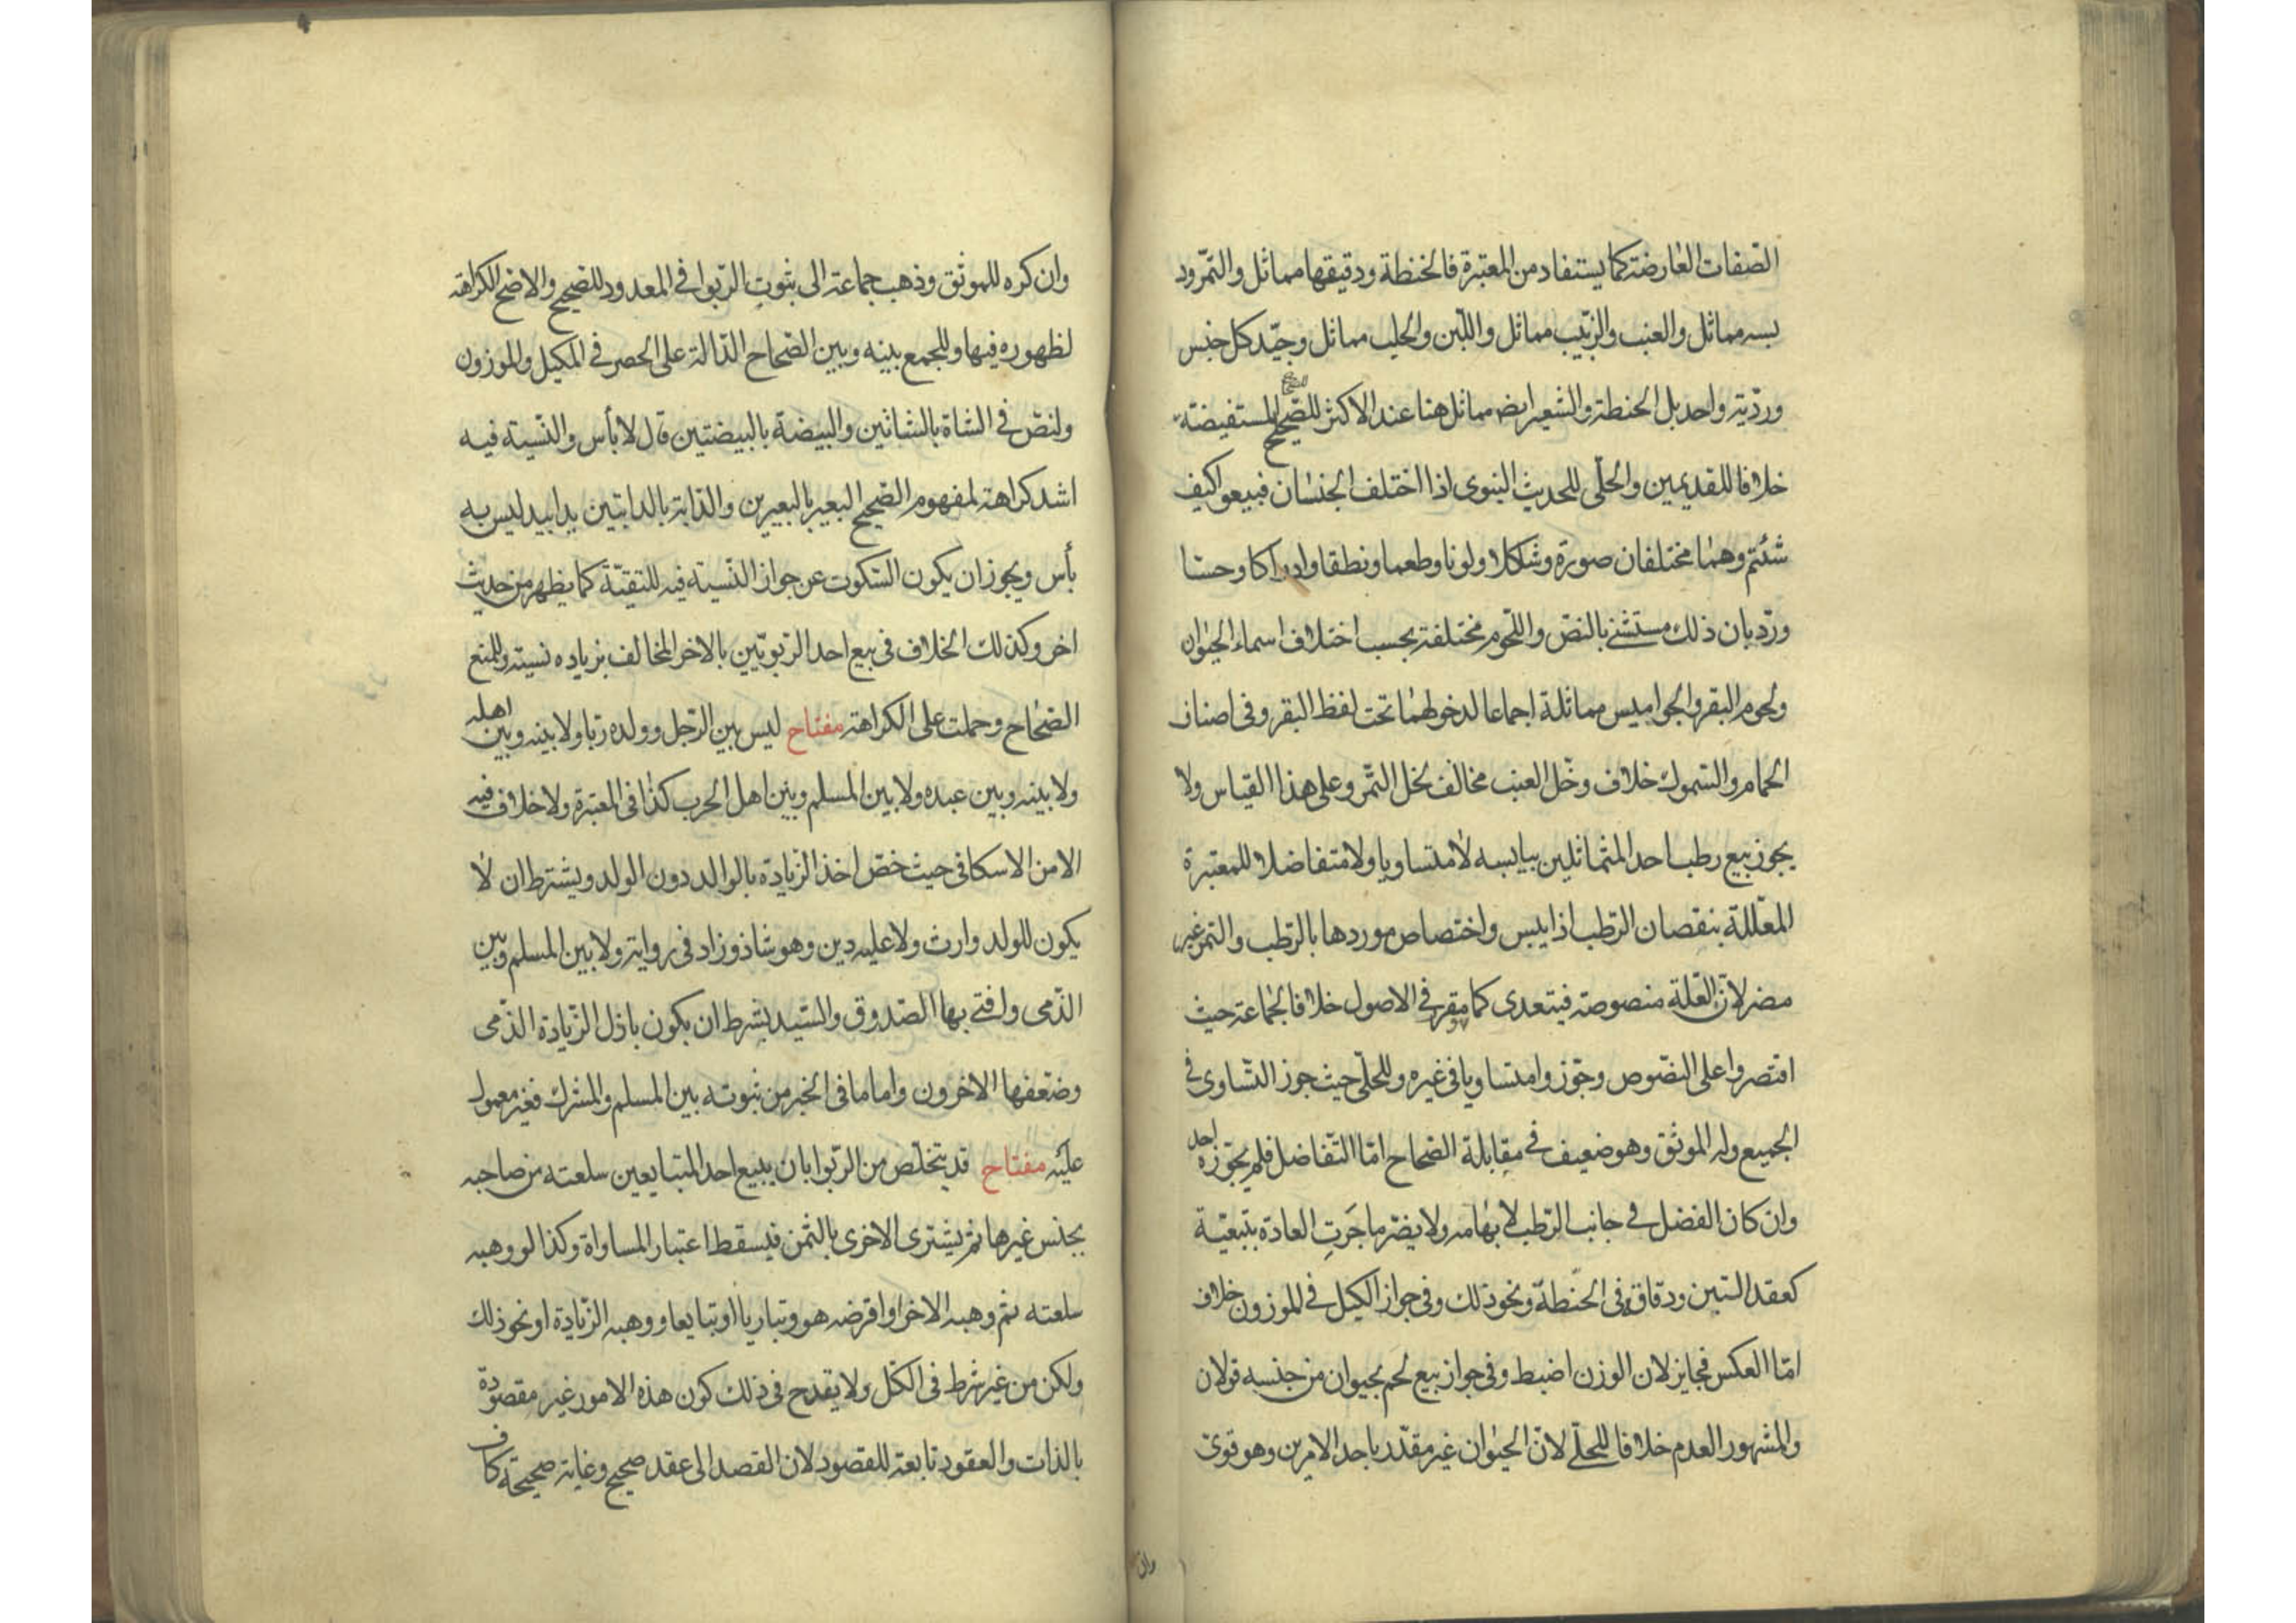 الصفات العارضة كما يستفاد من المعتبرة فالحنطة ودقيقها مماثل والتمر ود
بسه مماثل والعنب والزبيب مماثل واللبن والحليب مماثل وجيّد كل جنس
ورديّه واحد بل الحنطة والشعير ايض مماثل هنا عند الاكثر للصحيح المستفيضة
خلافا للقديمين والحلّي للحديث النبوى اذا اختلف الجنسان فبيعوا كيف
شئتم وهما مختلفان صورة وشكلا ولونا وطعما ونطقا وادراكا وحسّا
وردّ بان ذلك مستثنى بالنصّ واللّحوم مختلفة بحسب اختلاف اسماء الحيوان
ولحوم البقر والجواميس مماثلة اجماعا لدخولهما تحت لفظ البقر وفى اصناف
الحمام والسّموك خلاف وخلّ العنب مخالف لخل التّمر وعلى هذا القياس ولا
يجوز بيع رطب احد المتماثلين بيابسه لا متساويا ولا متفاضلا للمعتبرة
المعلّلة بنقصان الرّطب اذا يبس واختصاص موردها بالرّطب والتمر غير
مضر لانّ العلّة منصوصة فيتعدى كما مقرر فى الاصول خلافا لجماعة حيث
اقتصروا على النصّوص وجوّزوا متساويا فى غيره وللحلّى حيث جوز التّساوى فى
الجميع وله الموثّق وهو ضعيف فى مقابلة الصّحاح امّا التّفاضل فلم يجوّزه احد
وان كان الفضل فى جانب الرّطب لابهامه ولا يضرّ ما جَرَتِ العادة بتبعيّة
كعقد التبن ودقاقه فى الحنطة ونحو ذلك وفى جواز الكيل فى الموزون خلاف
امّا العكس فجايز لان الوزن اضبط وفى جواز بيع لحم بحيوان من جنسه قولان
والمشهور العدم خلافا للحلّي لانّ الحيوان غير مقدّر باحد الامرين وهو قوىّ
وان
وان كره للموثق وذهب جماعة الى ثبوت الرّبوا فى المعدود للصحيح والاصح الكراهة
لظهوره فيها وللجمع بينه وبين الصّحاح الدّالة على الحصر فى المكيل والموزون
ولنصّ فى الشاة بالشاتين والبيضة بالبيضتين قال لا بأس والنّسيئة فيه
اشد كراهة لمفهوم الصّحيح البعير بالبعيرين والدّابة بالدابتين يدا بيد ليس به
بأس ويجوز ان يكون السّكوت عن جواز النّسيئة فيه للتقيّة كما يظهر من حديث
اخر وكذلك الخلاف فى بيع احد الربوىّين بالاخر المخالف بزياده نسيئة وللمنع
الصّحاح وحملت على الكراهة مفتاح ليس بين الرّجل وولده ربا ولا بينه وبين اهله
ولا بينه وبين عبده ولا بين المسلم وبين اهل الحرب كذا فى المعتبرة ولا خلاف فيه
الا من الاسكافى حيث خصّ اخذ الزيادة بالوالد دون الولد ويشترط ان لا
يكون للولد وارث ولا عليه دين وهو شاذ وزاد فى رواية ولا بين المسلم وبين
الذّمى وافتى بها الصّدوق والسّيد بشرط ان يكون باذل الزّيادة الذّمى
وضعّفها الاخرون واما ما فى الخبر من ثبوته بين المسلم والمشرك فغير معمول
عليه مفتاح قد يتخلّص من الرّبوا بان يبيع احد المتبايعين سلعته من صاحبه
بجنس غيرها ثم يشترى الاخرى بالثّمن فيسقط اعتبار المساواة وكذا لو وهبه
سلعته ثم وهبه الاخر او اقرضه هو وتباريا او تبايعا ووهبه الزّيادة او نحو ذلك
ولكن من غير شرط فى الكلّ ولا يقدح فى ذلك كون هذه الامور غير مقصودة
بالذات والعقود تابعة للقصود لان القصد الى عقد صحيح وغاية صحيحة كاف